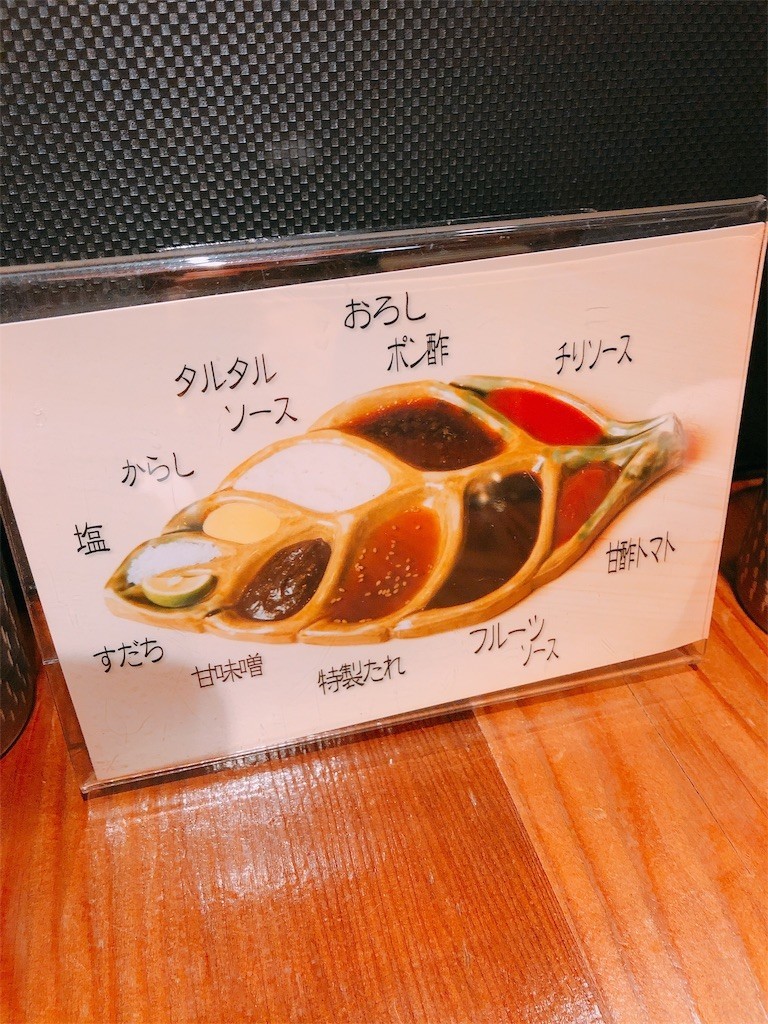 おろし
ポン酢
チリソース
タルタル
ソース
からし
塩
すだち
甘味噌
特製たれ
フルーツ
ソース
甘酢トマト